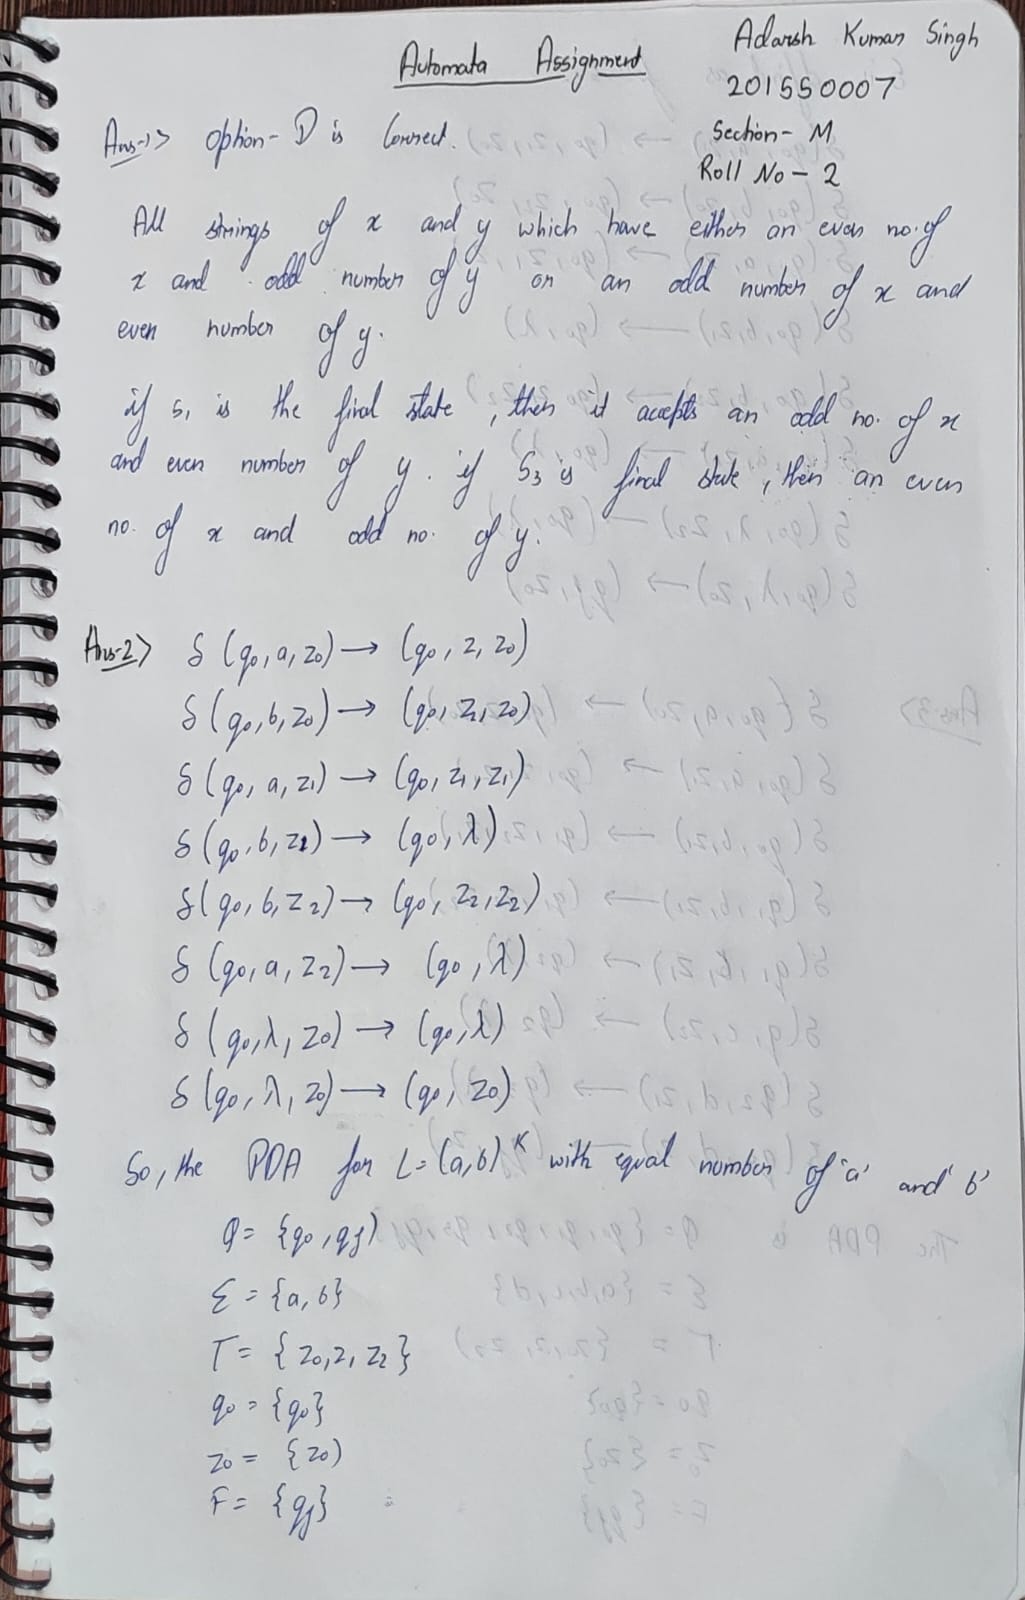 Automata Assignment
Adarsh Kumar Singh
201550007
Section - M
Roll No - 2
Ans-1> Option - D is Correct.
All strings of x and y which have either an even no. of
x and odd number of y or an odd number of x and
even number of y.
if S₁ is the final state, then it accepts an odd no. of x
and even number of y. if S₃ is final state, then an even
no. of x and odd no. of y.
Ans-2> δ (q₀, a, z₀) → (q₀, z, z₀)
δ (q₀, b, z₀) → (q₀, z₁, z₀)
δ (q₀, a, z₁) → (q₀, z₁, z₁)
δ (q₀, b, z₁) → (q₀, λ)
δ (q₀, b, z₂) → (q₀, z₂, z₂)
δ (q₀, a, z₂) → (q₀, λ)
δ (q₀, λ, z₀) → (q₀, λ)
δ (q₀, λ, z₀) → (q₀, z₀)
So, the PDA for L = (a, b)ᴷ with equal number of 'a' and 'b'
Q = {q₀, qf)
Σ = {a, b}
Γ = {z₀, z, z₂}
q₀ = {q₀}
z₀ = {z₀)
F = {qf}